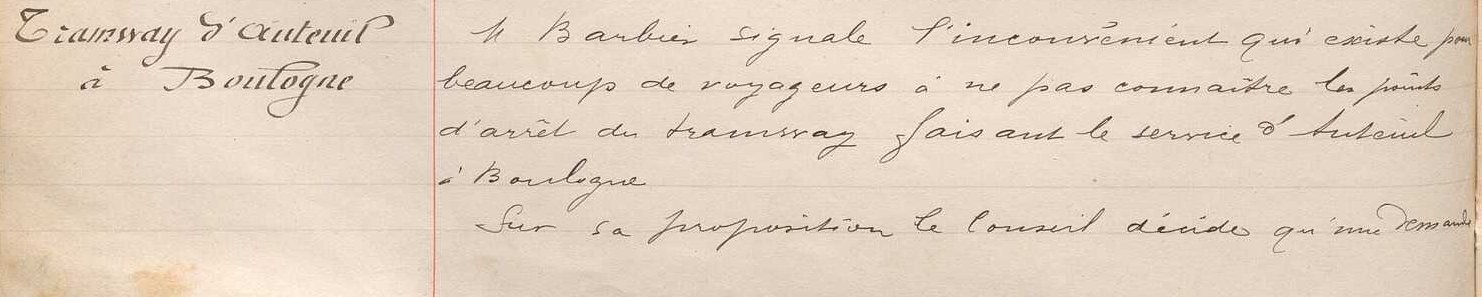 Tramway d'Auteuil
à Boulogne
M Barbier signale l'inconvénient qui existe pour
beaucoup de voyageurs à ne pas connaître les points
d'arrêt du tramway faisant le service d'Auteuil
à Boulogne
Sur sa proposition le Conseil décide qu'une demande